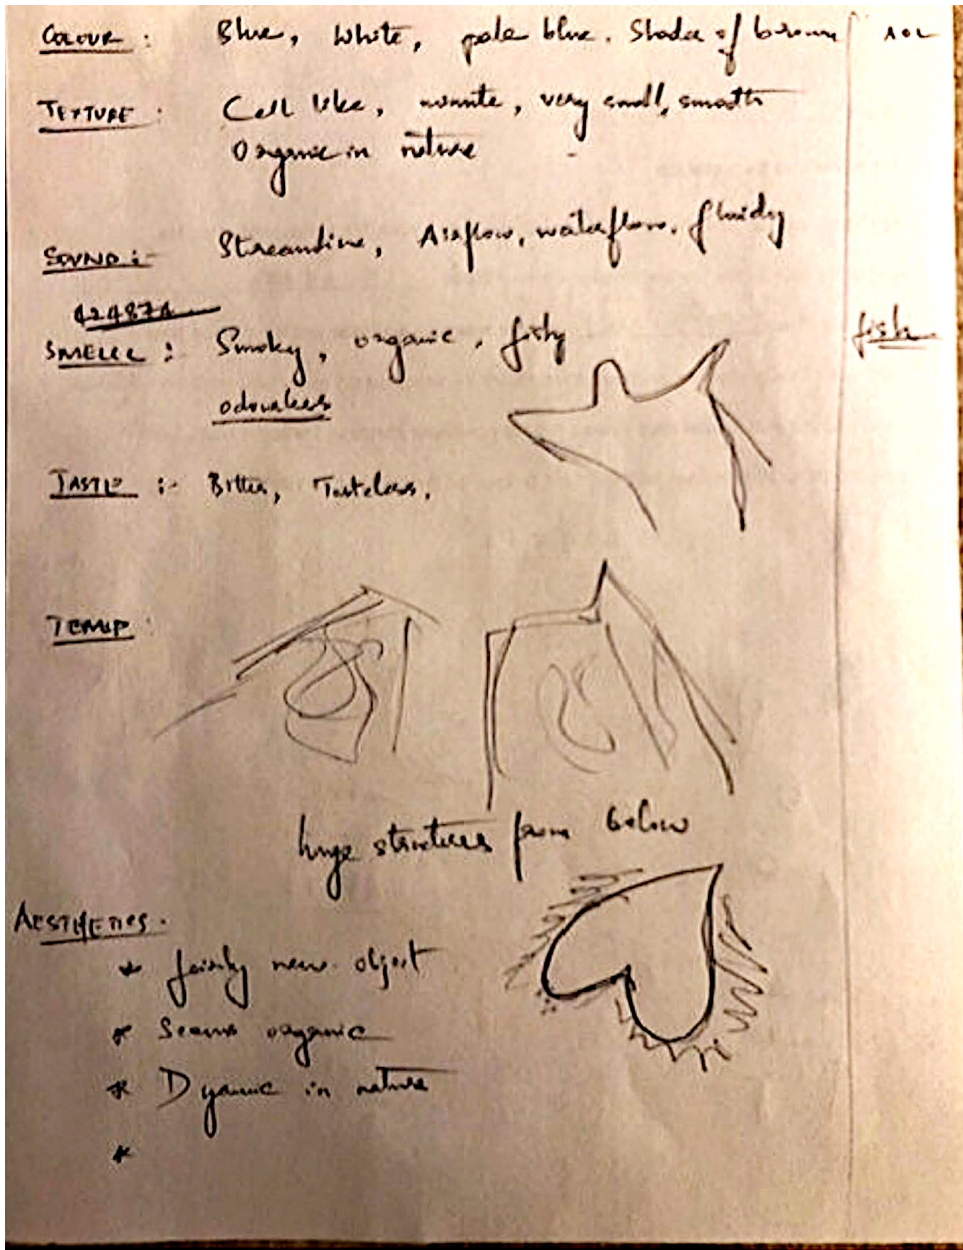 COLOUR : Blue, White, pale blue. Shades of brown AOL
TEXTURE : Cell like, minute, very small, smooth
Organic in nature
SOUND :- Streamline, Airflow, waterflow, fluidy
42487A
SMELL : Smoky, organic, fishy fish
odourless
TASTE :- Bitter, Tasteless,
TEMP :
huge structures from below
AESTHETICS -
* fairly new object
* Seems organic
* Dyamic in nature
*